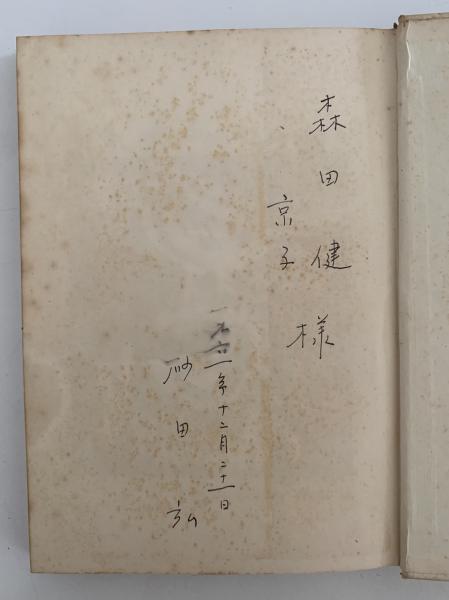 森田健
京子
様
一九六一年十二月二十一日
砂田弘